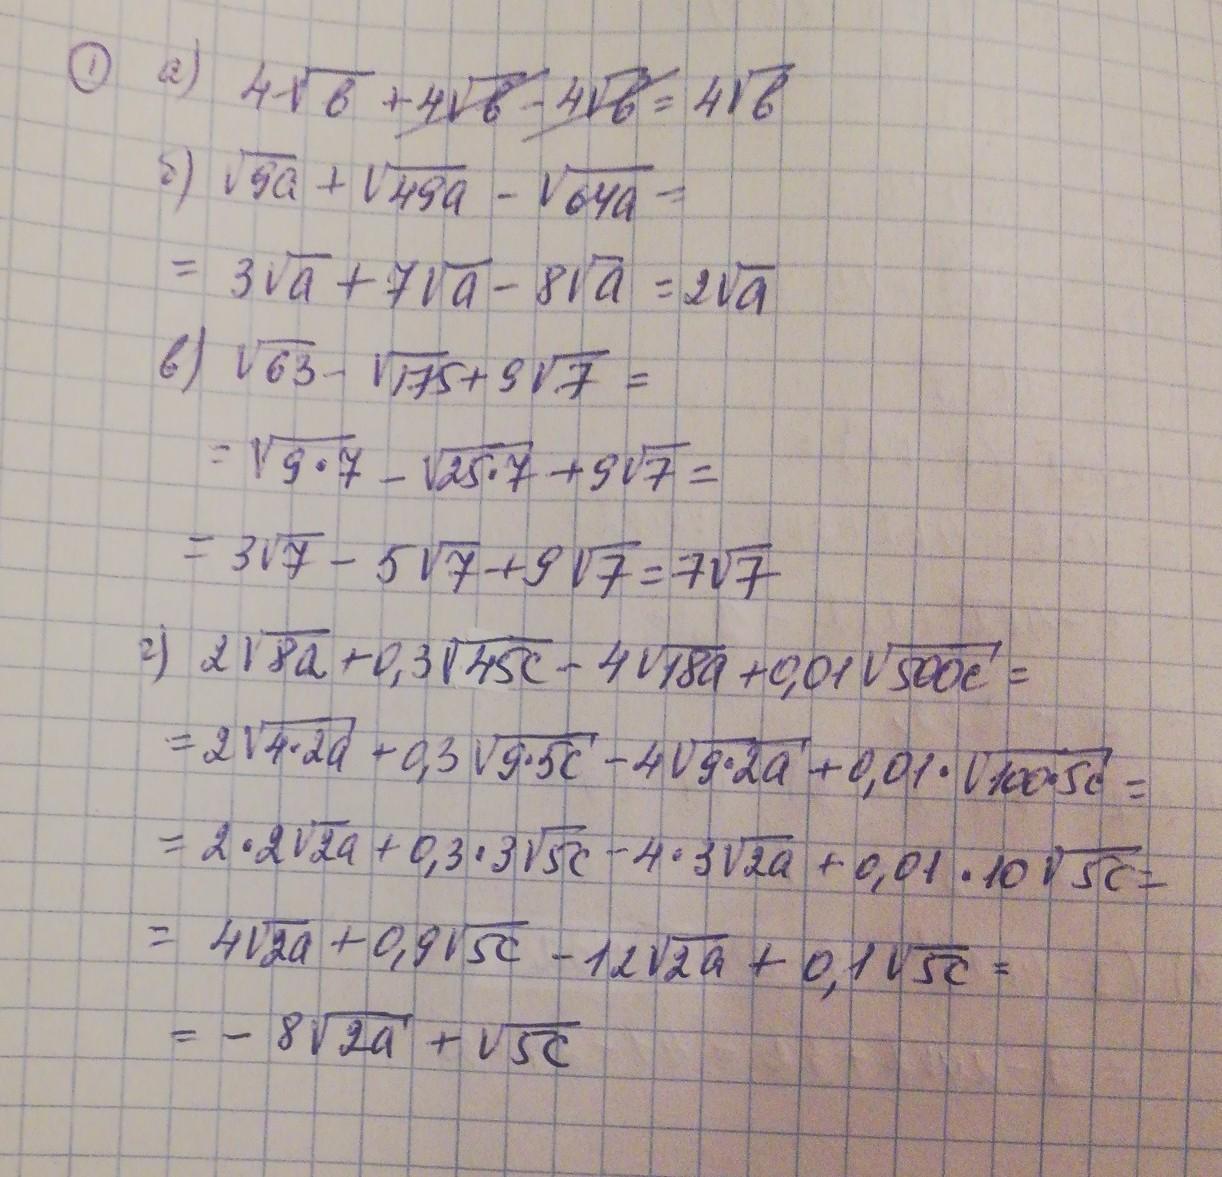 ① а) 4√в + 4√в - 4√в = 4√в
б) √9a + √49a - √64a =
= 3√a + 7√a - 8√a = 2√a
в) √63 - √175 + 9√7 =
= √9·7 - √25·7 + 9√7 =
= 3√7 - 5√7 + 9√7 = 7√7
г) 2√8a + 0,3√45c - 4√18a + 0,01√500c =
= 2√4·2a + 0,3√9·5c - 4√9·2a + 0,01·√100·5c =
= 2·2√2a + 0,3·3√5c - 4·3√2a + 0,01·10√5c =
= 4√2a + 0,9√5c - 12√2a + 0,1√5c =
= - 8√2a + √5c